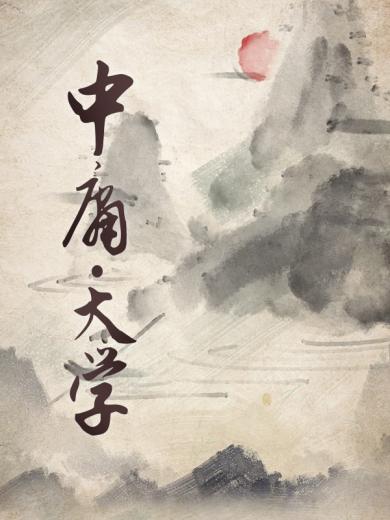 中庸·大学